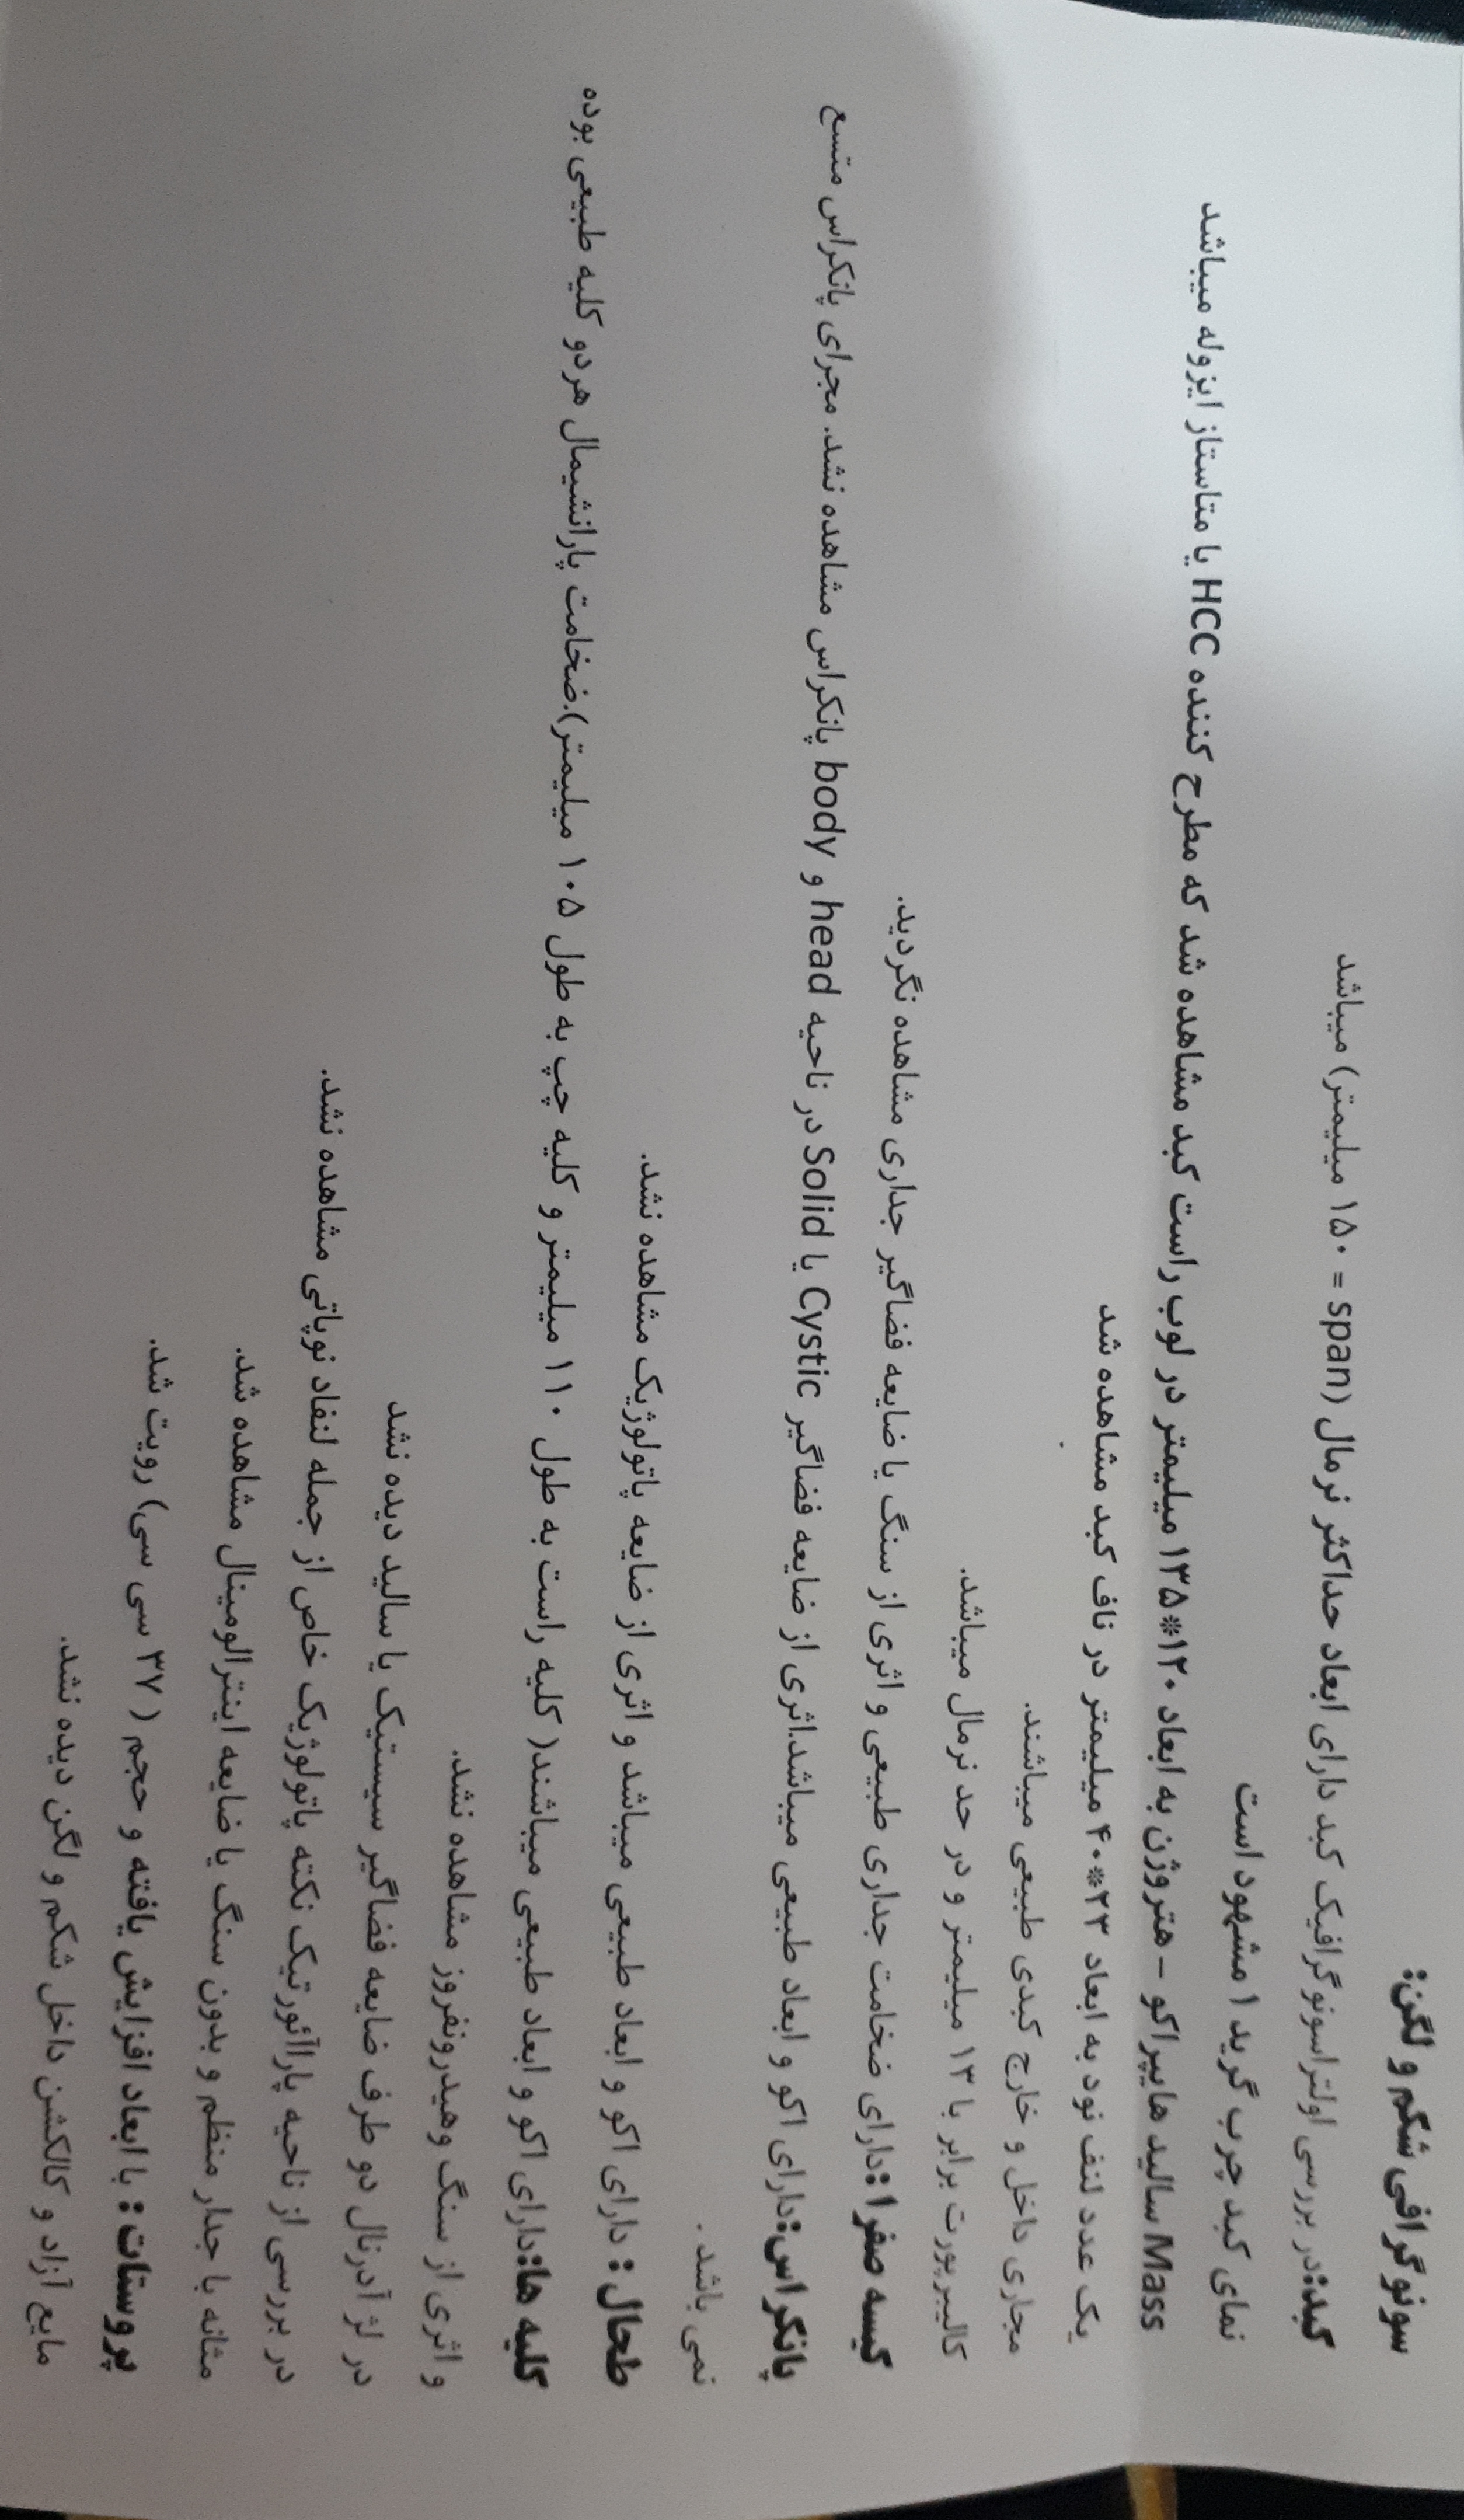 سونوگرافی شکم و لگن:
کبد:در بررسی اولتراسونوگرافیک کبد دارای ابعاد حداکثر نرمال (span = ۱۵۰ میلیمتر) میباشد
نمای کبد چرب گرید ۱ مشهود است
Mass سالید هایپراکو – هتروژن به ابعاد ۱۲۰*۱۳۵ میلیمتر در لوب راست کبد مشاهده شد که مطرح کننده HCC یا متاستاز ایزوله میباشد
یک عدد لنف نود به ابعاد ۲۳*۴۰ میلیمتر در ناف کبد مشاهده شد
مجاری داخل و خارج کبدی طبیعی میباشند.
کالیبر پورت برابر با ۱۳ میلیمتر و در حد نرمال میباشد.
کیسه صفرا:دارای ضخامت جداری طبیعی و اثری از سنگ یا ضایعه فضاگیر جداری مشاهده نگردید.
پانکراس:دارای اکو و ابعاد طبیعی میباشد.اثری از ضایعه فضاگیر Cystic یا Solid در ناحیه head و body پانکراس مشاهده نشد. مجرای پانکراس متسع
نمی باشد .
طحال: دارای اکو و ابعاد طبیعی میباشد و اثری از ضایعه پاتولوژیک مشاهده نشد.
کلیه ها:دارای اکو و ابعاد طبیعی میباشند( کلیه راست به طول ۱۱۰ میلیمتر و کلیه چپ به طول ۱۰۵ میلیمتر).ضخامت پارانشیمال هردو کلیه طبیعی بوده
و اثری از سنگ وهیدرونفروز مشاهده نشد.
در لژ آدرنال دو طرف ضایعه فضاگیر سیستیک یا سالید دیده نشد
در بررسی از ناحیه پاراآئورتیک نکته پاتولوژیک خاص از جمله لنفاد نوپاتی مشاهده نشد.
مثانه با جدار منظم و بدون سنگ یا ضایعه اینترالومینال مشاهده شد.
پروستات: با ابعاد افزایش یافته و حجم ( ۳۷ سی سی) رویت شد.
مایع آزاد و کالکشن داخل شکم و لگن دیده نشد.